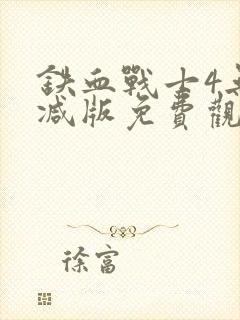 鉄血戰士4
減版免費觀
徐富